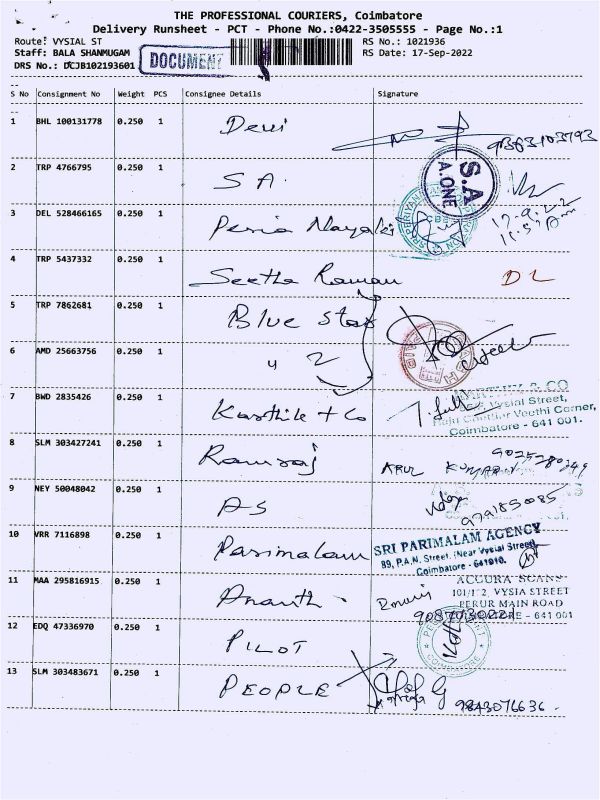 THE PROFESSIONAL COURIERS, Coimbatore
Delivery Runsheet - PCT - Phone No.:0422-3505555 - Page No.:1
Route: VYSIAL ST
RS No.: 1021936
Staff: BALA SHANMUGAM
RS Date: 17-Sep-2022
DRS No.: DCJB102193601
DOCUMENT
S No Consignment No Weight PCS Consignee Details Signature
1 BHL 100131778 0.250 1 Devi 9363103793
2 TRP 4766795 0.250 1 S A. S.A A.ONE
3 DEL 528466165 0.250 1 Peria Nayaki 17.9.22
4 TRP 5437332 0.250 1 Seetha Raman DL
5 TRP 7862681 0.250 1 Blue star
6 AMD 25663756 0.250 1 " 2
7 BWD 2835426 0.250 1 Karthik + Co
& CO
Vysial Street,
Veethi Corner,
Coimbatore - 641 001.
8 SLM 303427241 0.250 1 Ramraj ARUL KUMARAN
9 NEY 50048042 0.250 1 AS
10 VRR 7116898 0.250 1 Parimalam
SRI PARIMALAM AGENCY
89, P.A.N. Street, (Near Vysial Street)
Coimbatore - 641010.
11 MAA 295816915 0.250 1 Ananth
ACCURA SCANS
VYSIA STREET
PERUR MAIN ROAD
- 641 001
12 EDQ 47336970 0.250 1 PILOT
COIMBATORE
13 SLM 303483671 0.250 1 PEOPLE 9843076636